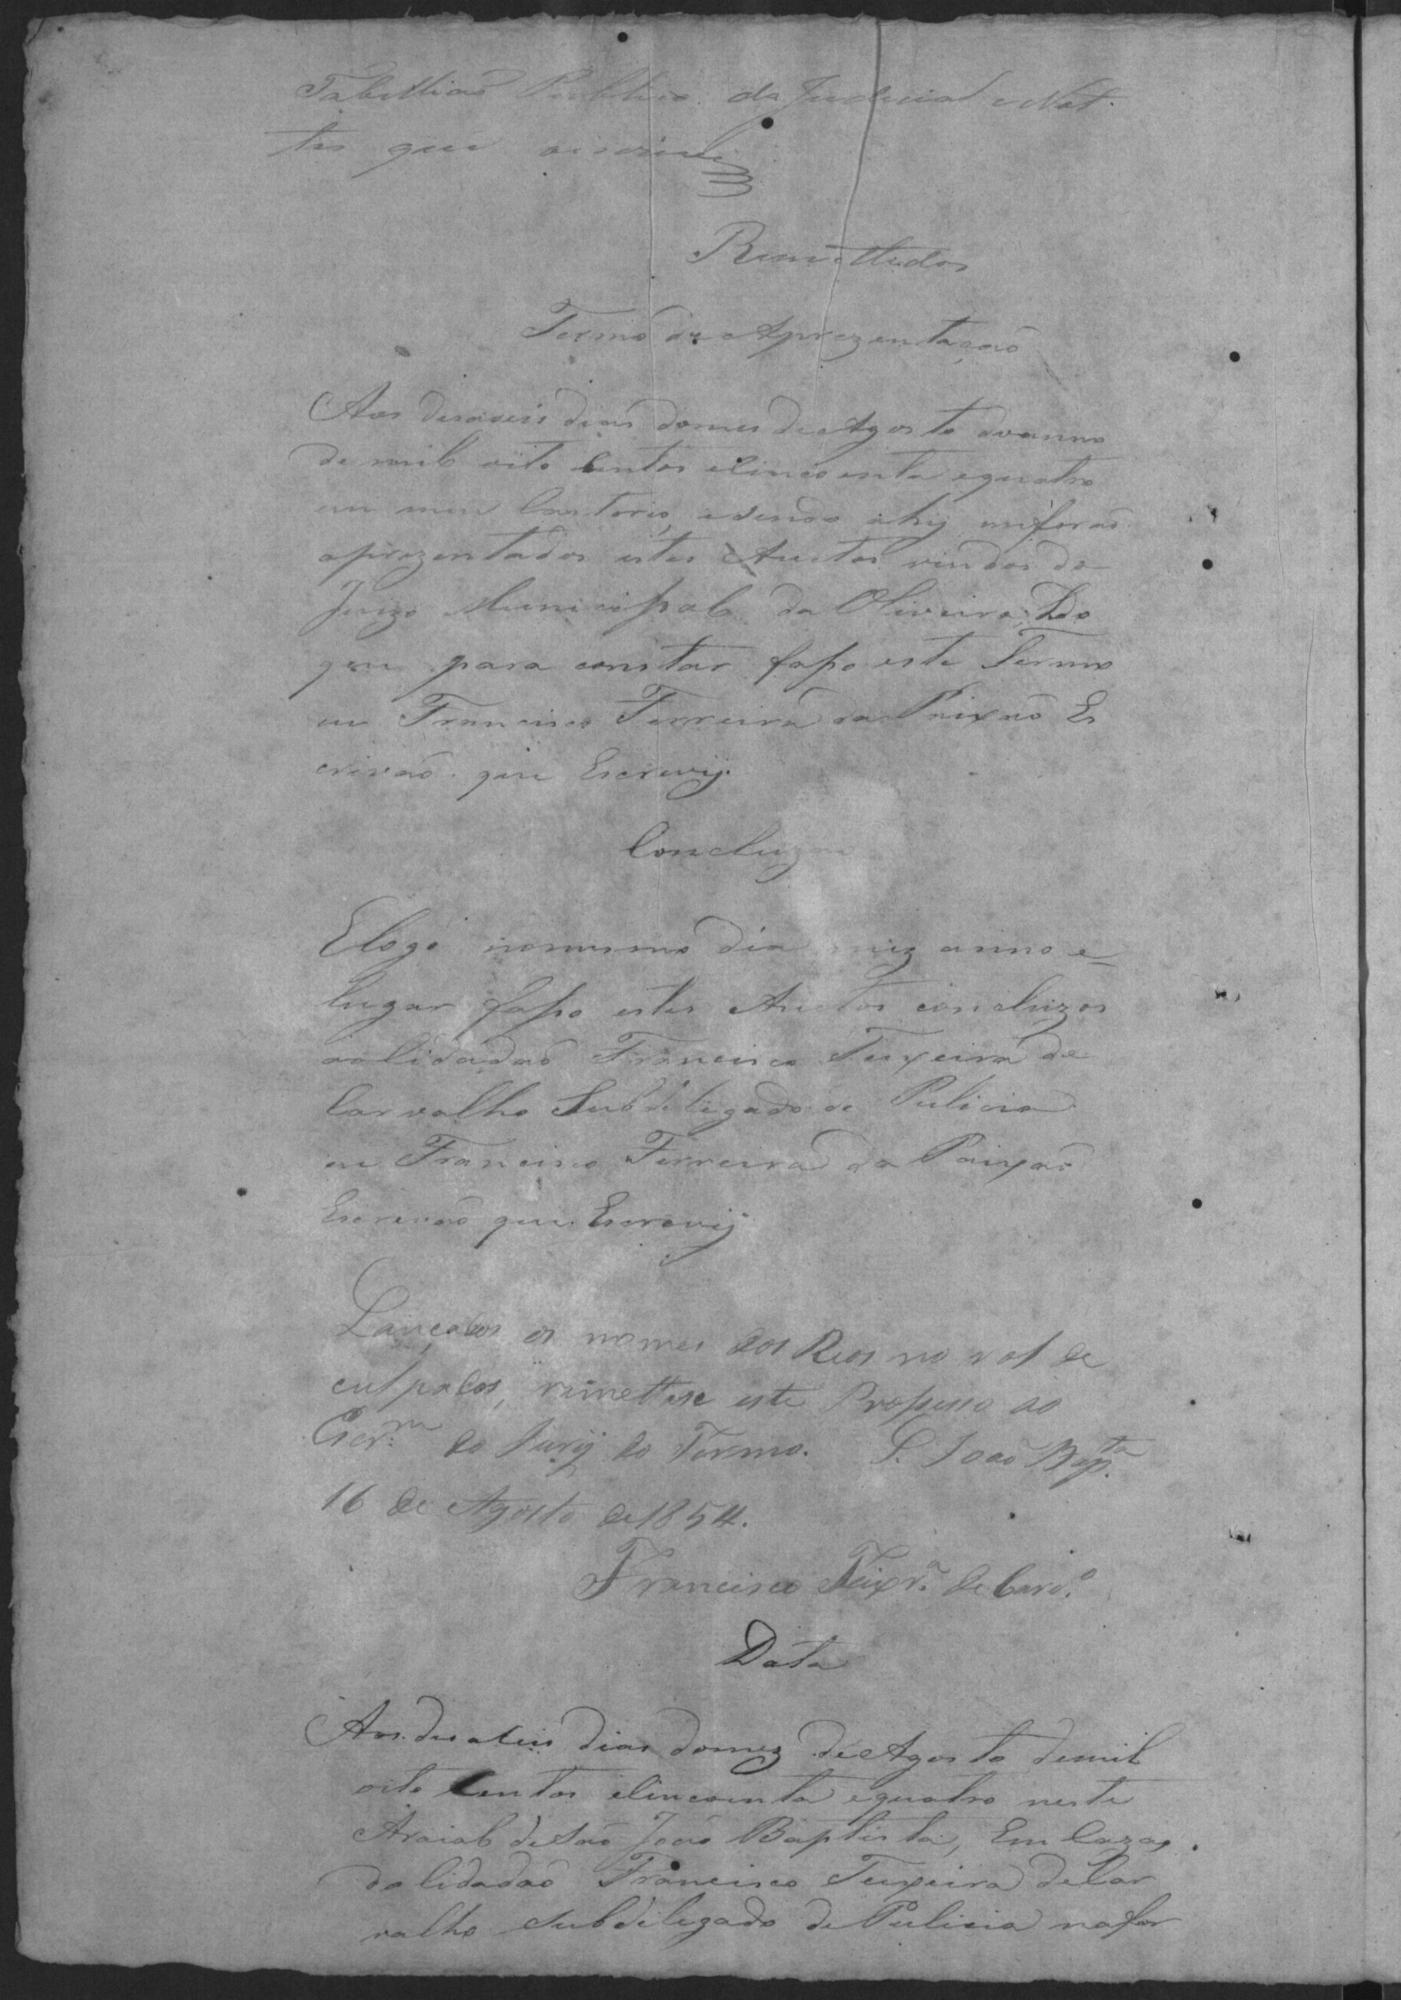 Tabelliaõ Publico do Judicial e Not
tas que escrevi
Remettidos
Termo de Aprezentaçaõ
Aos deseseis dias domes de Agosto doanno
de mil oito Centos eCincoenta equatro
em meu Cartorio, esendo ahy meforaõ
aprezentados estes Auctos vindos do
Juizo Municipal da Oliveira, Do
que para constar faço este Termo
eu Francisco Ferreira da Paixaõ Es
crivaõ que Escrevy
Concluzaõ
Elogo nomesmo dia mez anno e
lugar faço estes Auctos concluzos
aoCidadaõ Francisco Teixeira de
Carvalho Subdelegado de Pulicia
eu Francisco Ferreira da Paixaõ
Escrivaõ que Escrevij
Lançados os nomes dos Reos no rol de
culpados, remettese este Processo ao
Escr.m do Jurij do Termo. S. Joaõ Bap.ta
16 de Agosto de 1854.
Francisco Teixr.a de Carv.o
Data
Aos deseseis dias domez de Agosto demil
oito Centos eCincoenta equatro neste
Araial de Saõ Joaõ Baptista, Em Cazas
do Cidadaõ Francisco Teixeira de Car
valho Subdelegado de Pulicia mefor